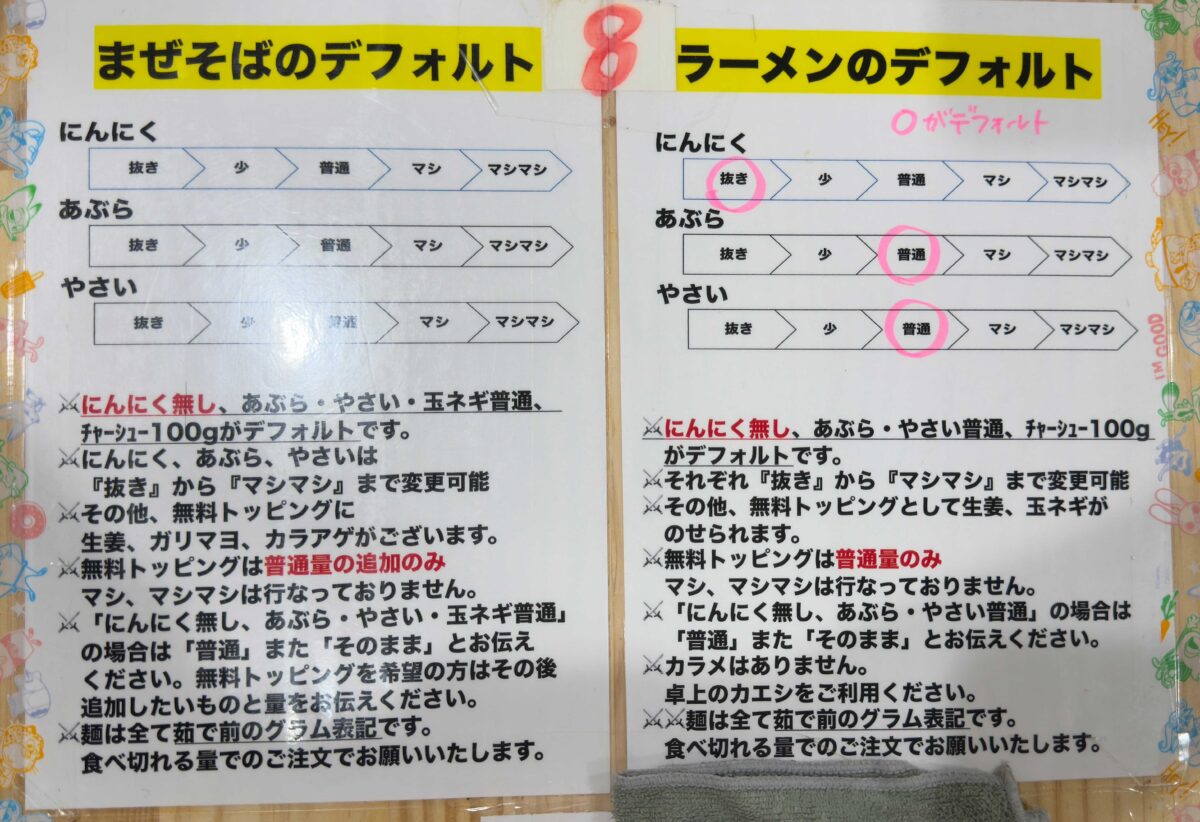 8
まぜそばのデフォルト
にんにく
抜き 少 普通 マシ マシマシ
あぶら
抜き 少 普通 マシ マシマシ
やさい
抜き 少 普通 マシ マシマシ
※にんにく無し、あぶら・やさい・玉ネギ普通、
ﾁｬｰｼｭｰ100gがデフォルトです。
※にんにく、あぶら、やさいは
『抜き』から『マシマシ』まで変更可能
※その他、無料トッピングに
生姜、ガリマヨ、カラアゲがございます。
※無料トッピングは普通量の追加のみ
マシ、マシマシは行なっておりません。
※「にんにく無し、あぶら・やさい・玉ネギ普通」
の場合は「普通」また「そのまま」とお伝え
ください。無料トッピングを希望の方はその後
追加したいものと量をお伝えください。
※麺は全て茹で前のグラム表記です。
食べ切れる量でのご注文でお願いいたします。
ラーメンのデフォルト
○がデフォルト
にんにく
抜き 少 普通 マシ マシマシ
あぶら
抜き 少 普通 マシ マシマシ
やさい
抜き 少 普通 マシ マシマシ
※にんにく無し、あぶら・やさい普通、ﾁｬｰｼｭｰ100g
がデフォルトです。
※それぞれ『抜き』から『マシマシ』まで変更可能
※その他、無料トッピングとして生姜、玉ネギが
のせられます。
※無料トッピングは普通量のみ
マシ、マシマシは行なっておりません。
※「にんにく無し、あぶら・やさい普通」の場合は
「普通」また「そのまま」とお伝えください。
※カラメはありません。
卓上のカエシをご利用ください。
※※麺は全て茹で前のグラム表記です。
食べ切れる量でのご注文でお願いいたします。
I'M GOOD